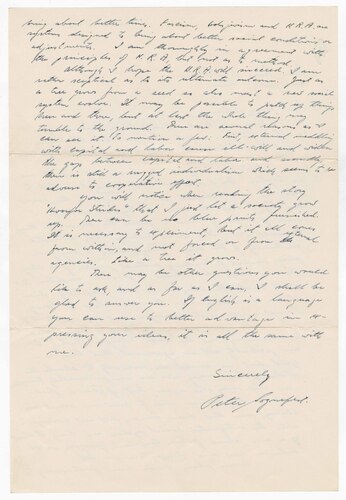 bring about better times. Fascism, bolshevism and N.R.A. are
systems designed to bring about better social conditions or
adjustments. I am thoroughly in agreement with
the principles of N.R.A. but not as to method.
Although I hope the N.R.A. will succeed, I am
rather sceptical as to its ultimate outcome. Just as
a tree grows from a seed so also must a new social
system evolve. It may be possible to patch up things
here and there, but at best the whole thing may
tumble to the ground. There are several reasons as I
can see it to mention a few. First external meddling
with capital and labor cause ill-will and widen
the gap between capital and labor and secondly
there is still a rugged individualism which seems to be
adverse to cooperative effort.
You will notice when reading the story
"Hoosier Strides" that I just let a society grow
up. There can be no blue prints furnished.
It is necessary to experiment, but it all comes
from within, and not forced on from external
agencies. Like a tree it grows.
There may be other questions you would
like to ask, and as far as I can, I shall be
glad to answer you. If English is a language
you can use to better advantage in ex-
pressing your ideas, it is all the same with
me.
Sincerely
Peter